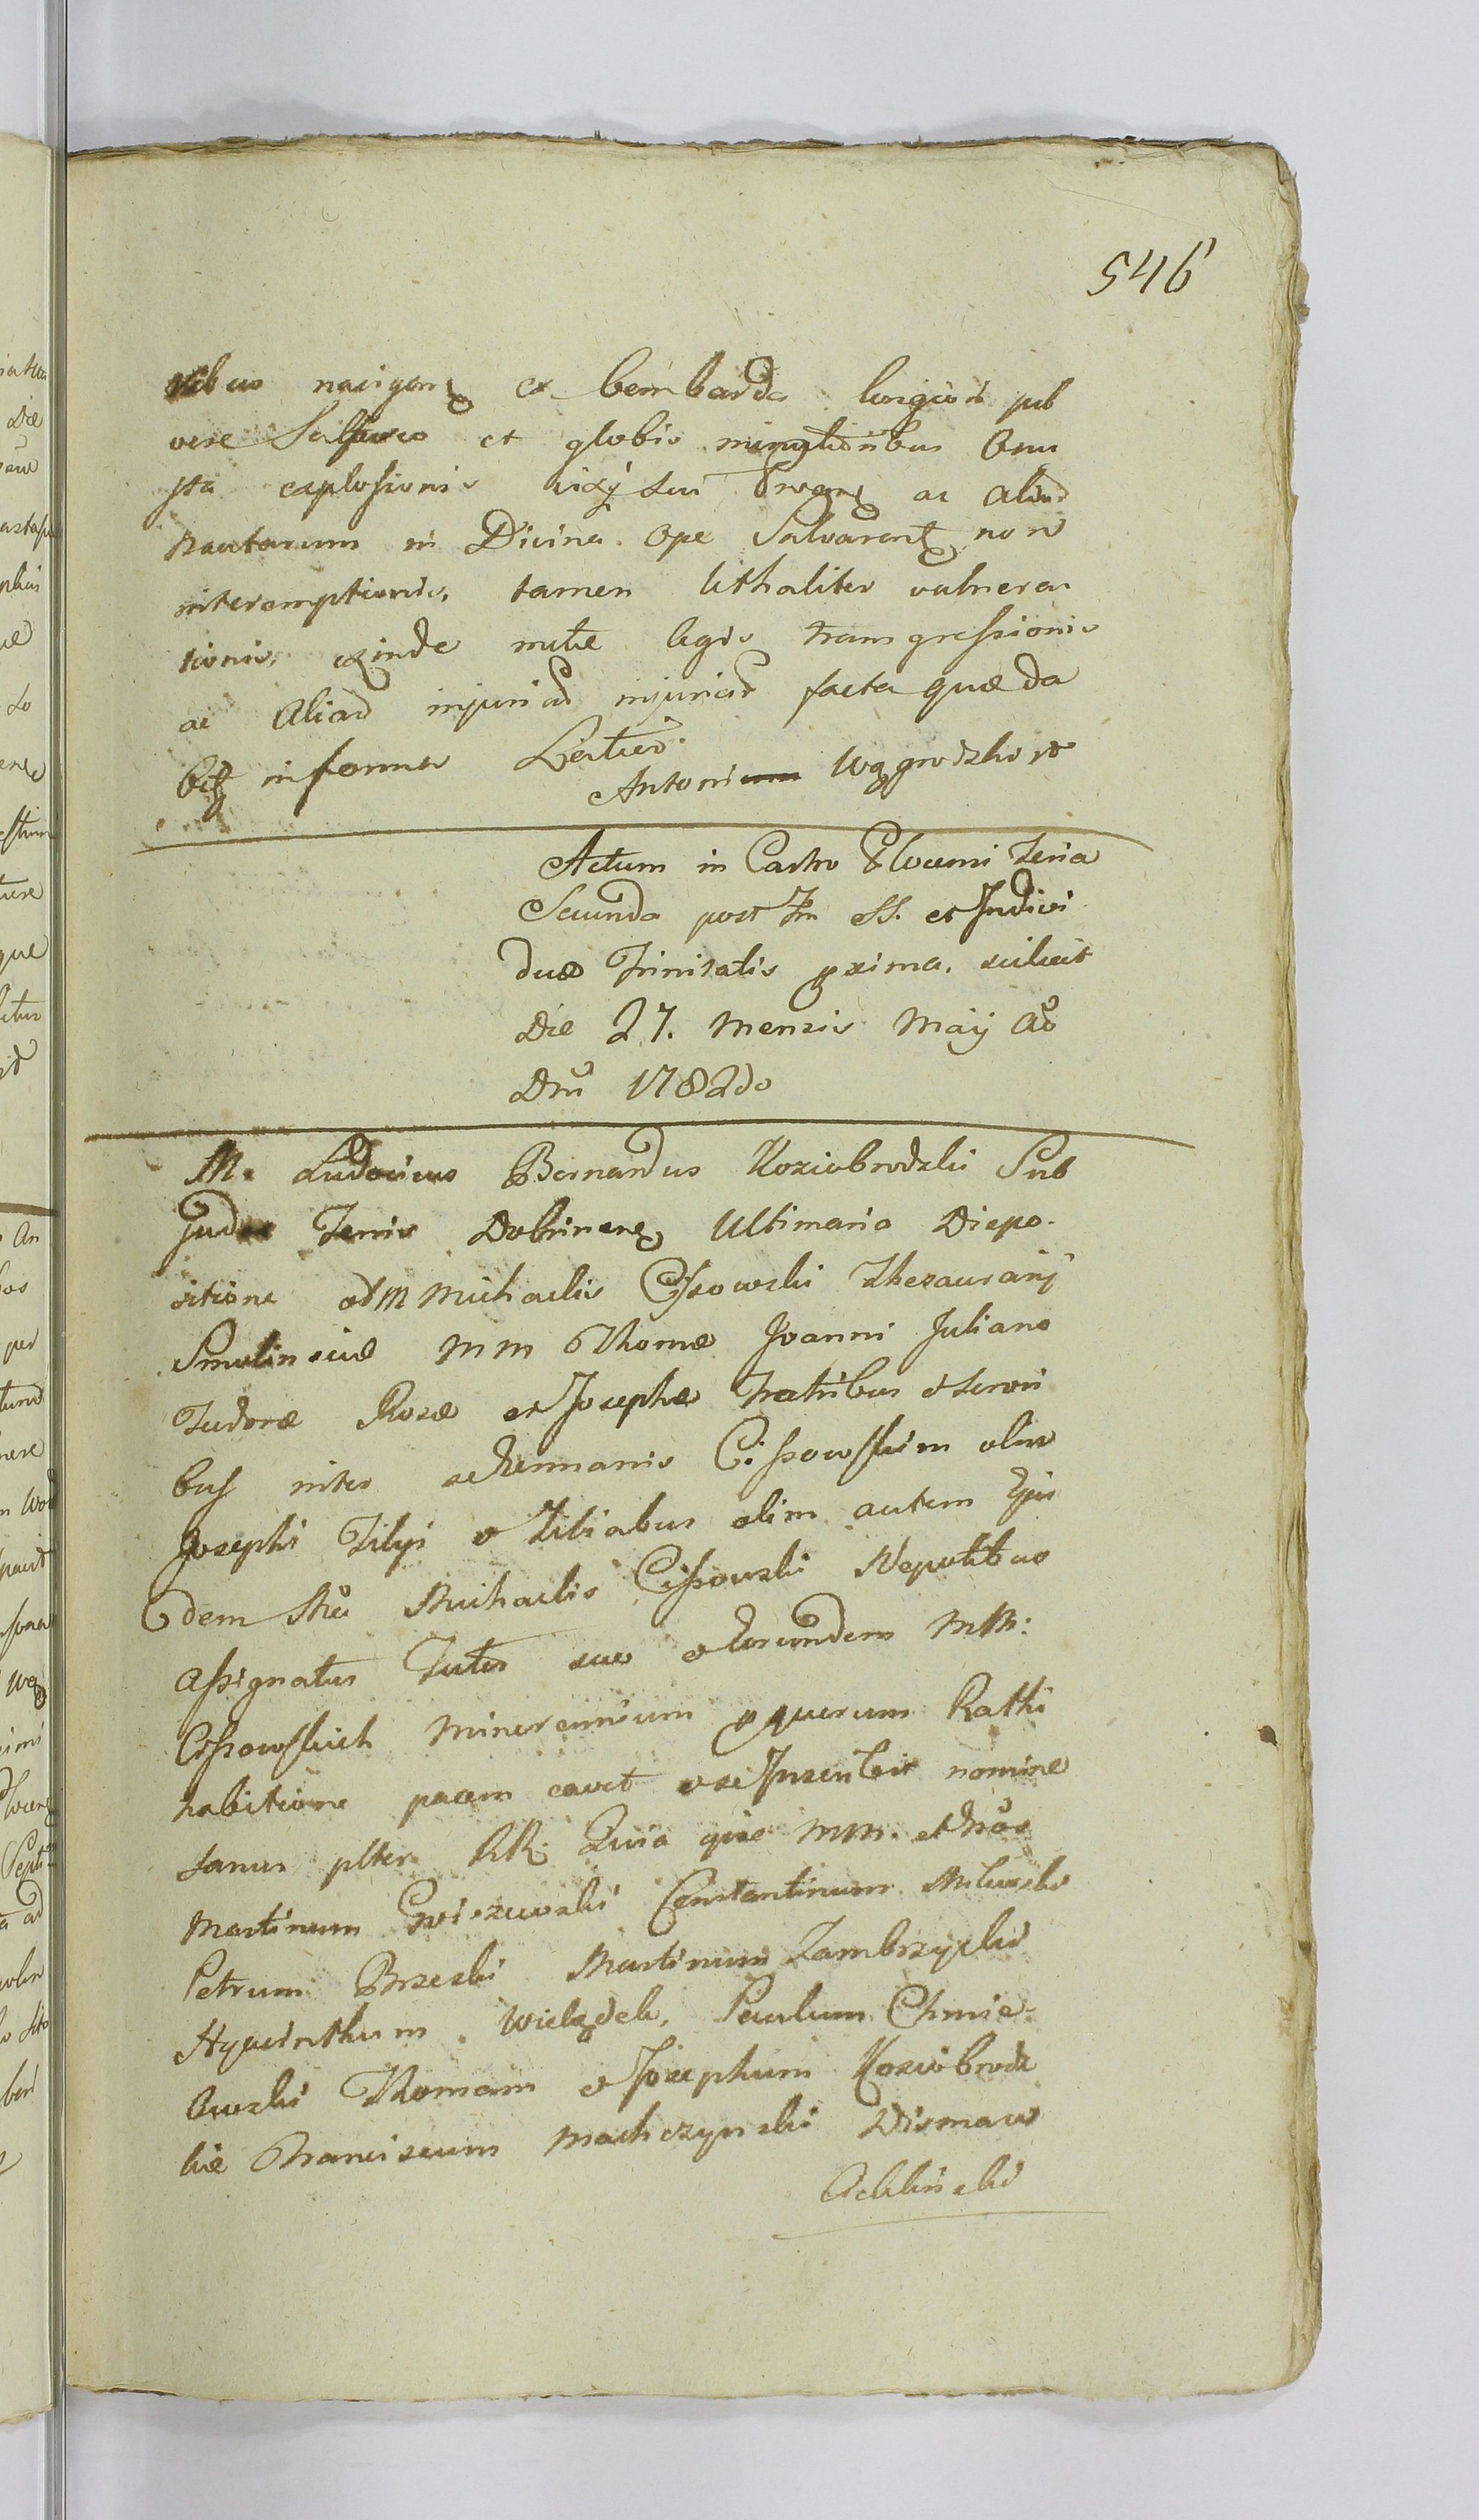 546
navigan ex bombarda longiori pul
vere Sulfureo et globis minutioribus Onu
sta explosionis ac aliar
nautarum ni Divina Ope Salvarent non
interemptionis, tamen lethaliter vulnera
tionis, exinde legis transgressionis
ac Aliar injuriar injuriar facta quæ da
informa Latius.
Antoni Węgrodzki
Actum in Castro Plocensi Feria
Secunda post Fm SS. et Indivi
duæ Trinitatis pxima. scilicet
Die 27. Mensis Maij Ao
Dni 1782do
M. Ludovicus Bernardus Koziebrodzki Sub
Judex Terris Dobrinens Ultimaria Dispo-
sitione M Michaelis Cissowski Thesaurarij
MM Thomæ Joanni Juliano
Rosæ et Josephæ Fratribus et Sorori
bus inter se Germanis Cissowskim olim
Josephi Filijs et Filiabus olim autem Ejus
dem Michaelis Cissowski Nepotibus
Assignatus Tutor suo et Eorundem MM:
Cissowskich Minorennium pquorum Rathi
habitione pacem cavet et se Inscribit nomine
Quia MM. et
Martinum Constantinum Milewski
Petrum Brzeski Martinum Zambrzycki
Hyacinthum Wielądek, Paulum Chmie-
lewski Thomam et Josephum Koziebrodz
kie Franciscum Machczynski Dismam